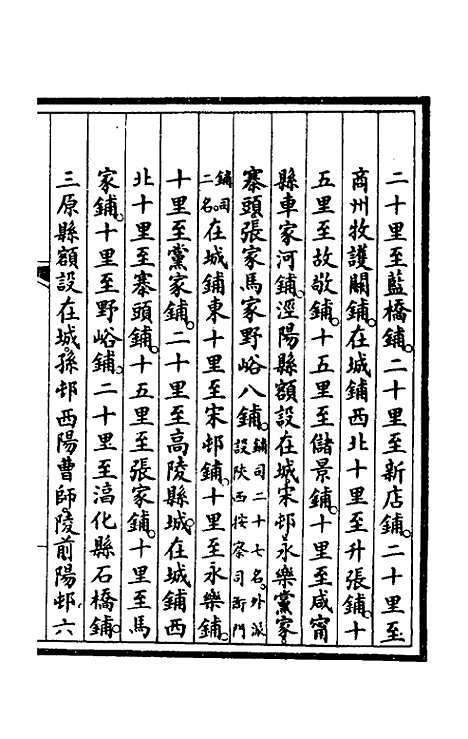 二十里至藍橋鋪。二十里至新店鋪。二十里至
商州牧護關鋪。在城鋪西北十里至升張鋪。十
五里至故敬鋪。十五里至儲景鋪。十里至咸甯
縣車家河鋪。涇陽縣額設在城。宋邨。永樂。黨家。
寨頭。張家。馬家。野峪八鋪。鋪司二十七名。外派設陝西按察司衙門
鋪司二名。在城鋪東十里至宋邨鋪。十里至永樂鋪。
十里至黨家鋪。二十里至高陵縣城。在城鋪西
北十里至寨頭鋪。十五里至張家鋪。十里至馬
家鋪。十里至野峪鋪。二十里至淳化縣石橋鋪。
三原縣額設在城。孫邨。西陽。曹師。陵前。陽邨。六